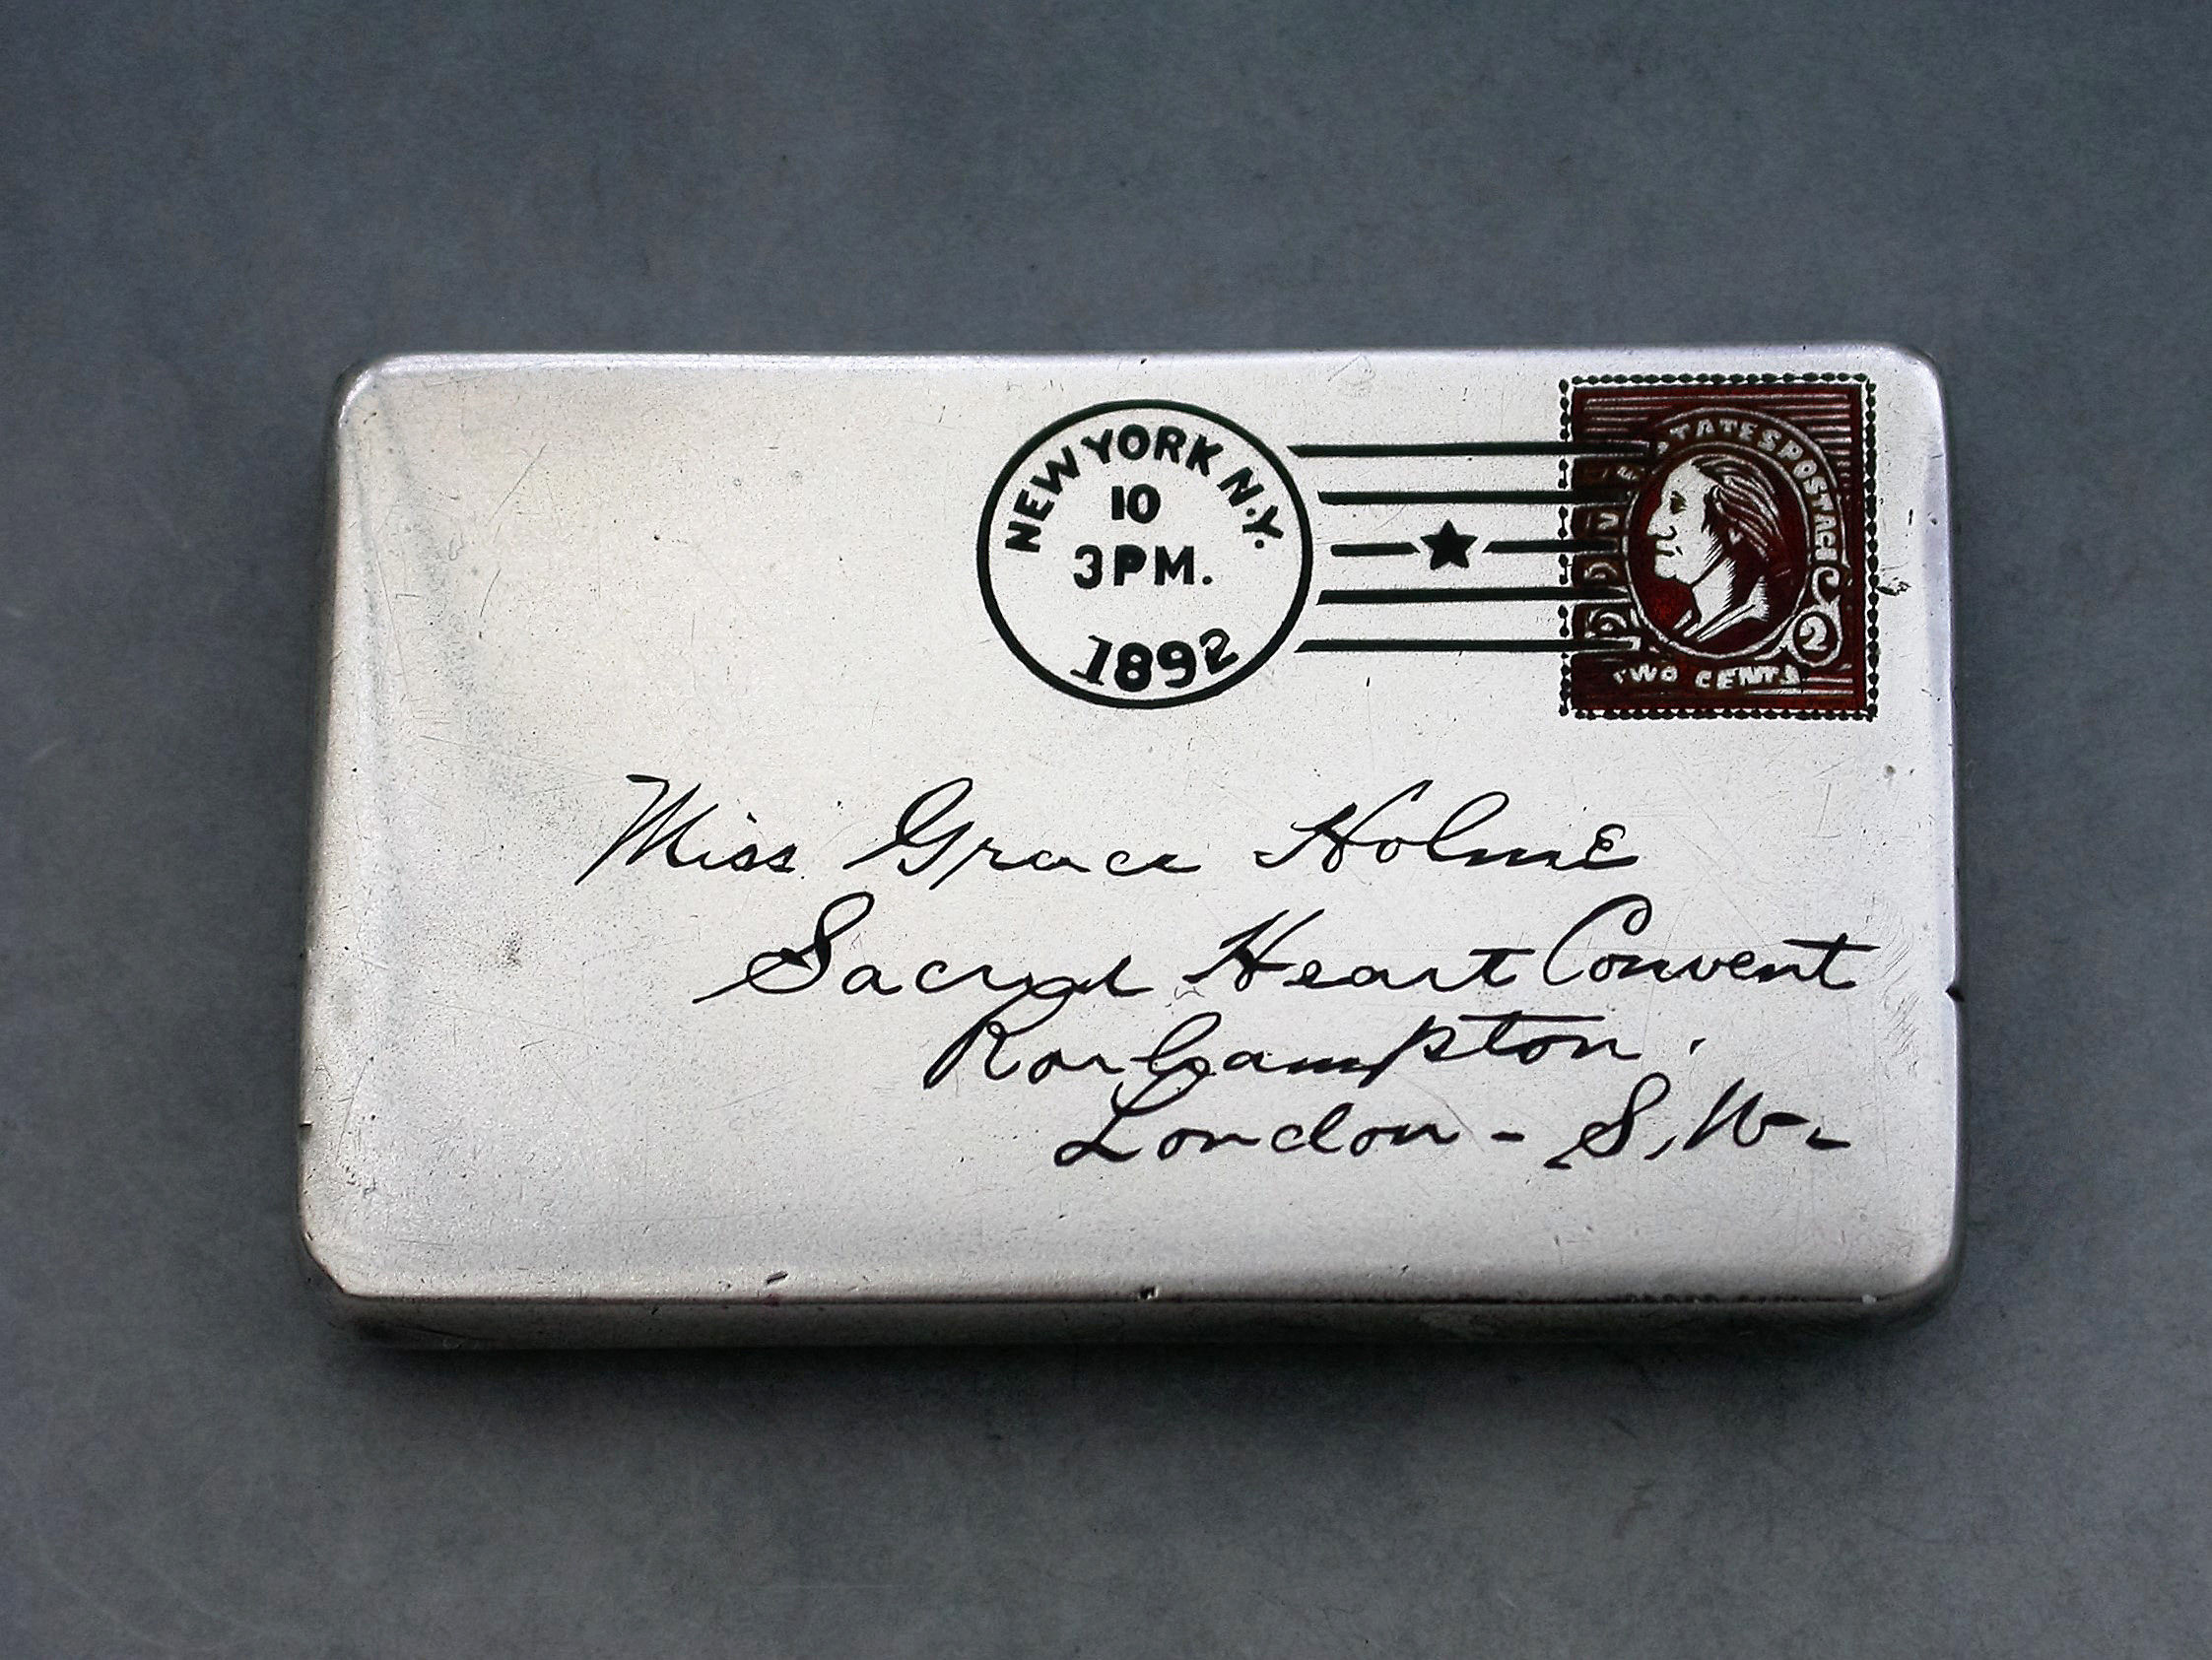 NEW YORK N.Y.
10
3 PM.
1892
STATES POSTAGE
2
TWO CENTS
Miss Grace Holme
Sacred Heart Convent
Roehampton.
London - S.W.